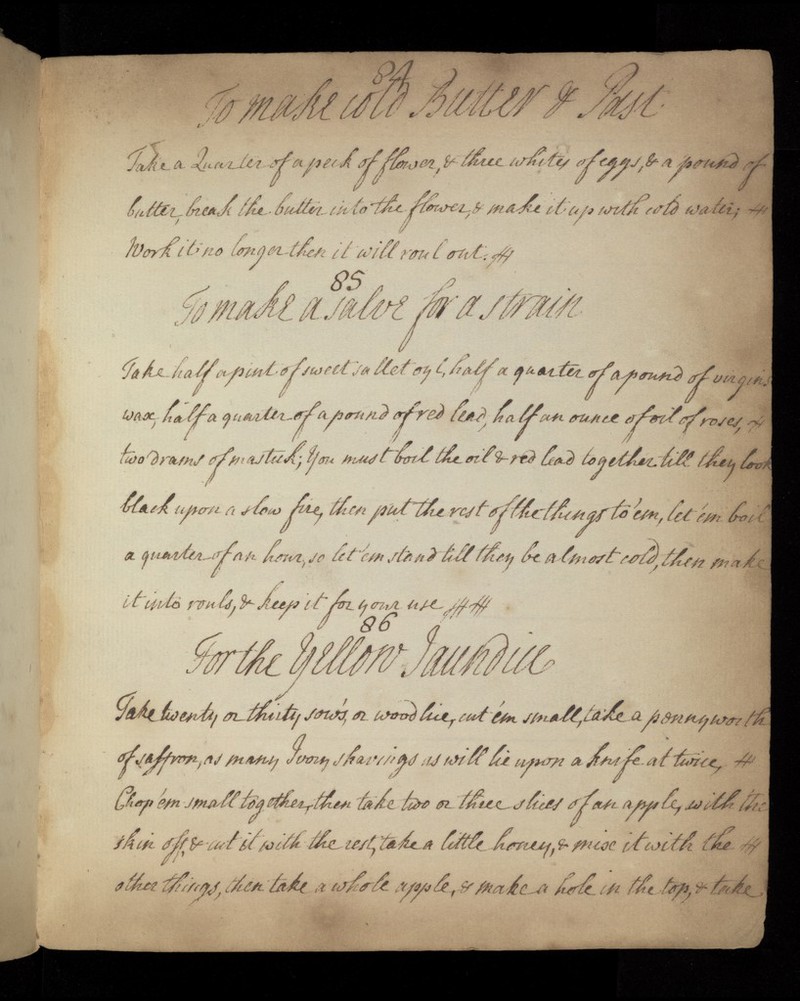 84
To make cold Butter & Past.
Take a Quarter of a peck of flower, & three whites of eggs, & a pound of
butter, break the butter into the flower, & make it up with cold water;
Work it no longer then it will roul out.
85
To make a salve for a strain
Take half a pint of sweet sallet oyl, half a quarter of a pound of virgins
wax, half a quarter of a pound of red lead, half an ounce of oil of roses, &
two drams of mastick; You must boil the oil & red lead together till they look
black upon a slow fire, then put the rest of the things to 'em, let 'em boil
a quarter of an hour, so let 'em stand till they be almost cold, then make
it into rouls, & keep it for your use
86
For the Yellow Jaundice
Take twenty or thirty sow's, or wood lice, cut 'em small, take a pennyworth
of saffron, as many Ivory shavings as will lie upon a knife at twice,
Chop 'em small together, then take two or three slices of an apple, with the
skin off, & cut it with the rest, take a little honey, & mixe it with the
other things, then take a whole apple, & make a hole in the top, & take